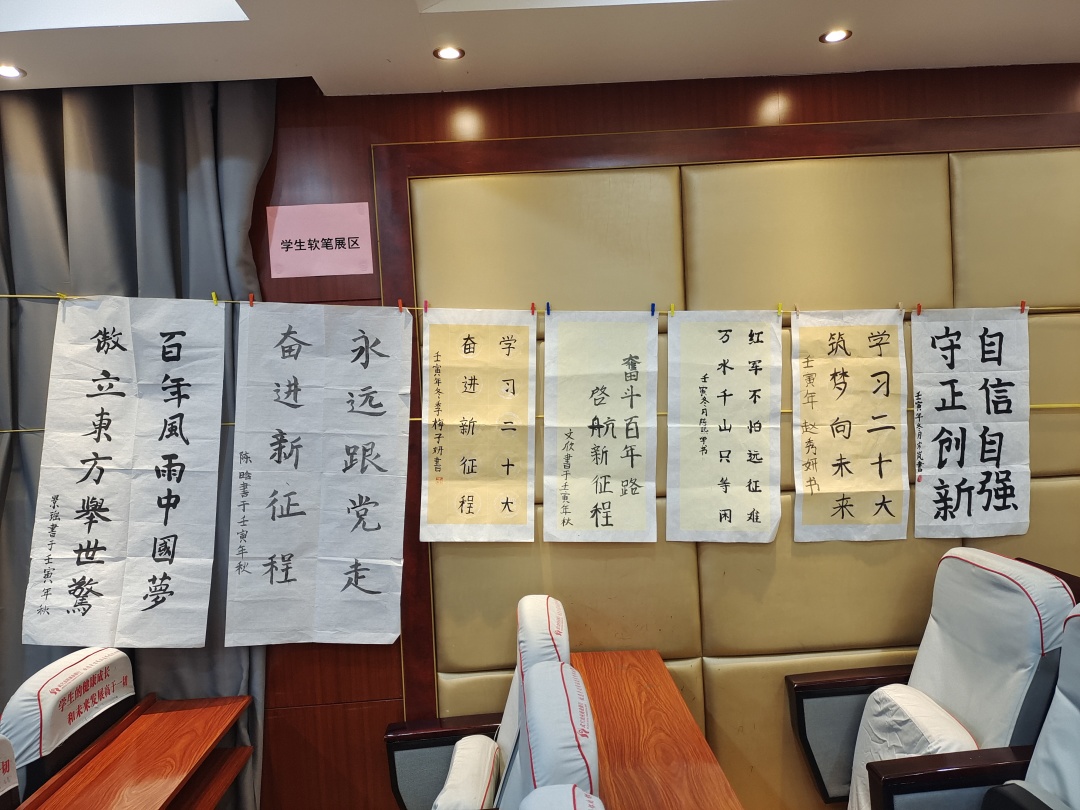 学生软笔展区
百年風雨中國夢
傲立東方舉世驚
景瑶書于壬寅年秋
永远跟党走
奋进新征程
陈晗書于壬寅年秋
学习二十大
奋进新征程
壬寅年冬季梅子妍書
奮斗百年路
啓航新征程
文欣書于壬寅年秋
红军不怕远征难
万水千山只等闲
壬寅冬月
书
学习二十大
筑梦向未来
壬寅年 赵秀妍书
自信自强
守正创新
壬寅年冬月
書
学生的健康成长
和未来发展高于一切
切